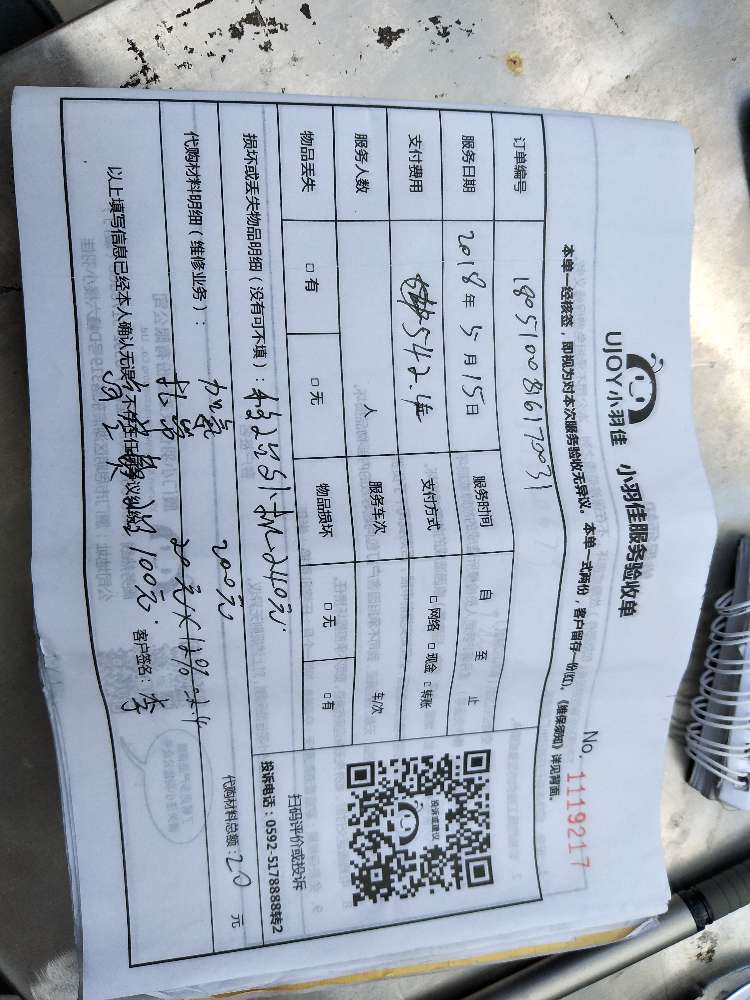 UJOY小羽佳 小羽佳服务验收单
No. 1119217
本单一经核签，即视为对本次服务验收无异议。本单一式两份，客户留存一份(红)。《维保须知》详见背面。
订单编号 1805100816170031
服务日期 2018年5月15日 服务时间 自 至 止
支付费用 542.4 支付方式 □网络 □现金 □转账
服务人数 人 服务车次 车/次
物品丢失 □有 □无 物品损坏 □无 □有
投诉或建议
扫码评价或投诉
投诉电话：0592-5178888转2
损坏或丢失物品明细（没有可不填）： 240元.
代购材料明细（维修业务）： 加氟 200元
代购材料总额：20 元
20元×12%=2.4
100元.
以上填写信息已经本人确认无误，不存在任何争议或纠纷 客户签名：李